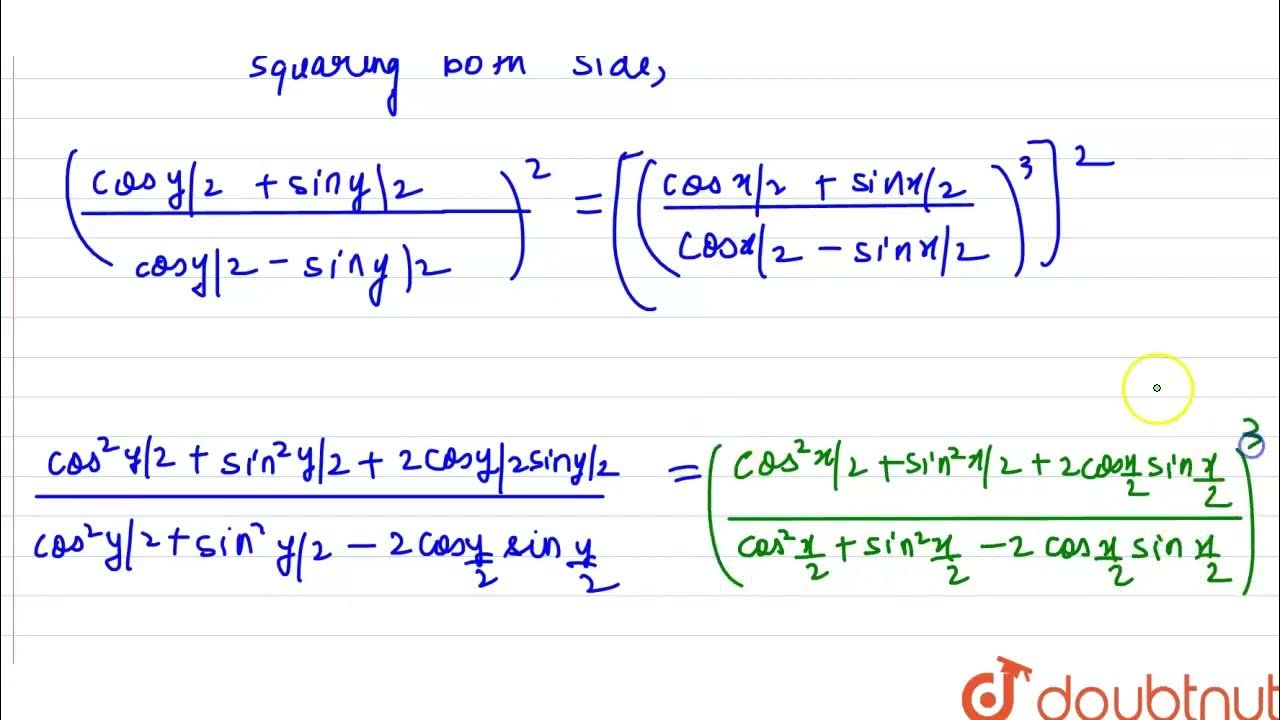 squaring both side,
(cos y/2 + sin y/2 / cos y/2 - sin y/2)² = [(cos x/2 + sin x/2 / cos x/2 - sin x/2)³]²
cos² y/2 + sin² y/2 + 2 cos y/2 sin y/2 / cos² y/2 + sin² y/2 - 2 cos y/2 sin y/2 = (cos² x/2 + sin² x/2 + 2 cos x/2 sin x/2 / cos² x/2 + sin² x/2 - 2 cos x/2 sin x/2)³
doubtnut